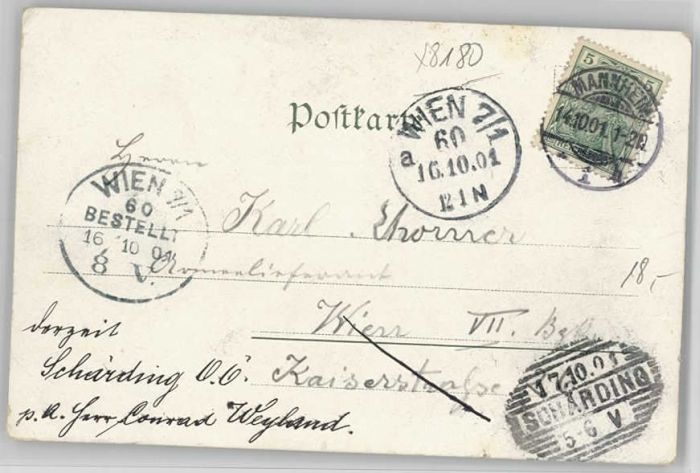 x8180
5 5
MANNHEIM
14.10.01. 1-2N.
1
Postkarte
a WIEN 7/1
60
16.10.01
EIN
Herrn
WIEN 7/1
60
BESTELLT
16 10 01
8 V.
Karl
Armeelieferant
18,-
Wien VII. Bzk.
derzeit
Schärding O.Ö. Kaiserstraße
p. A. Herr Conrad Weyland.
17.10.01
SCHÄRDING
5-6 V